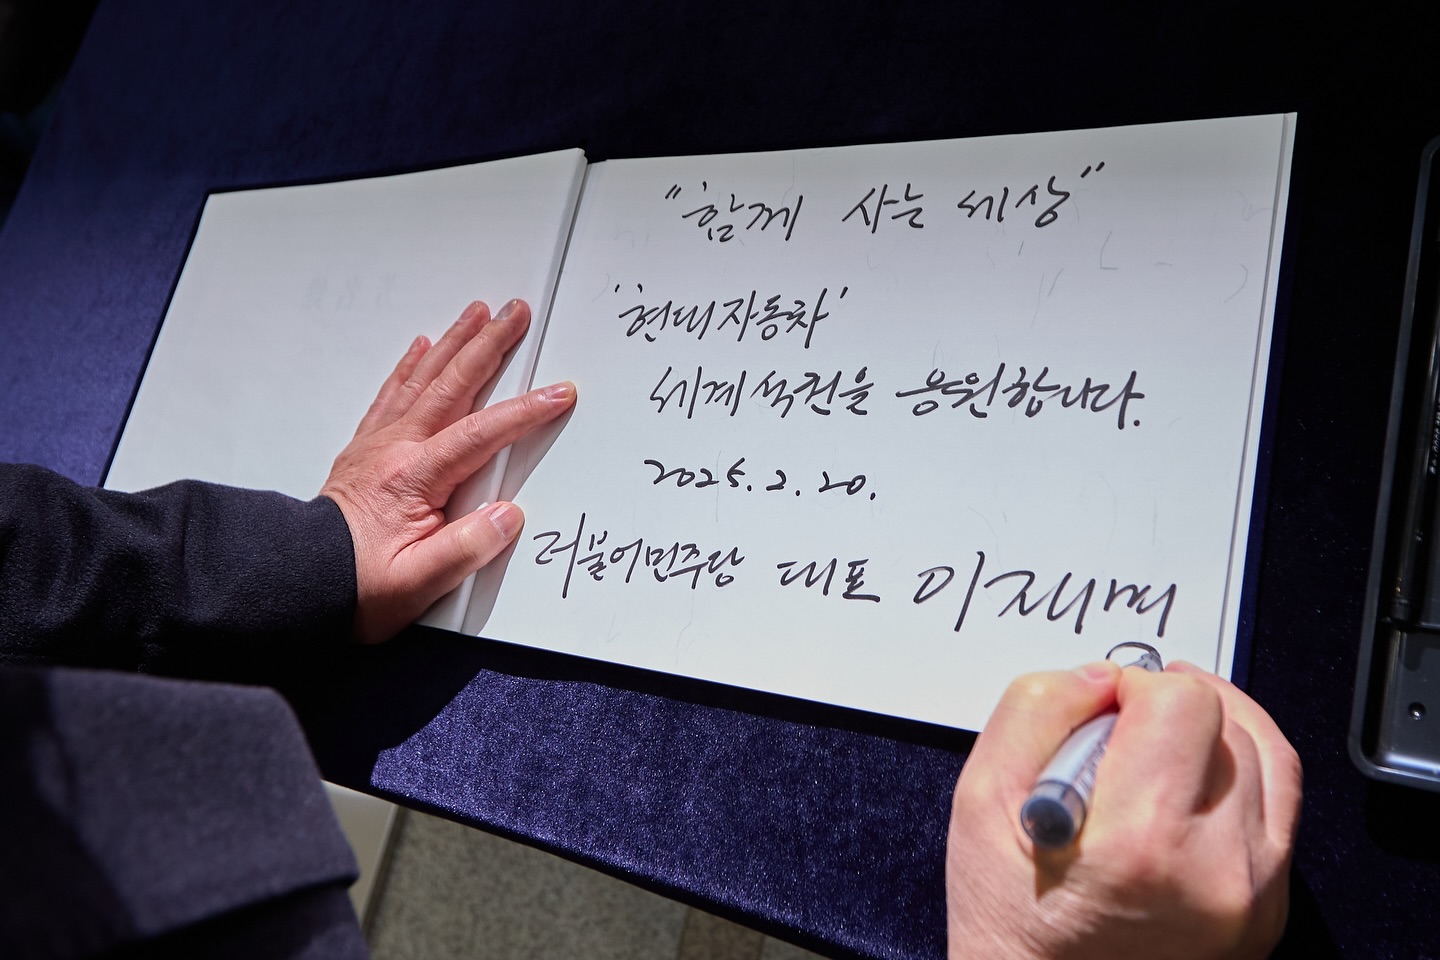 "함께 사는 세상"
'현대자동차'
세계석권을 응원합니다.
2025. 2. 20.
더불어민주당 대표 이재며